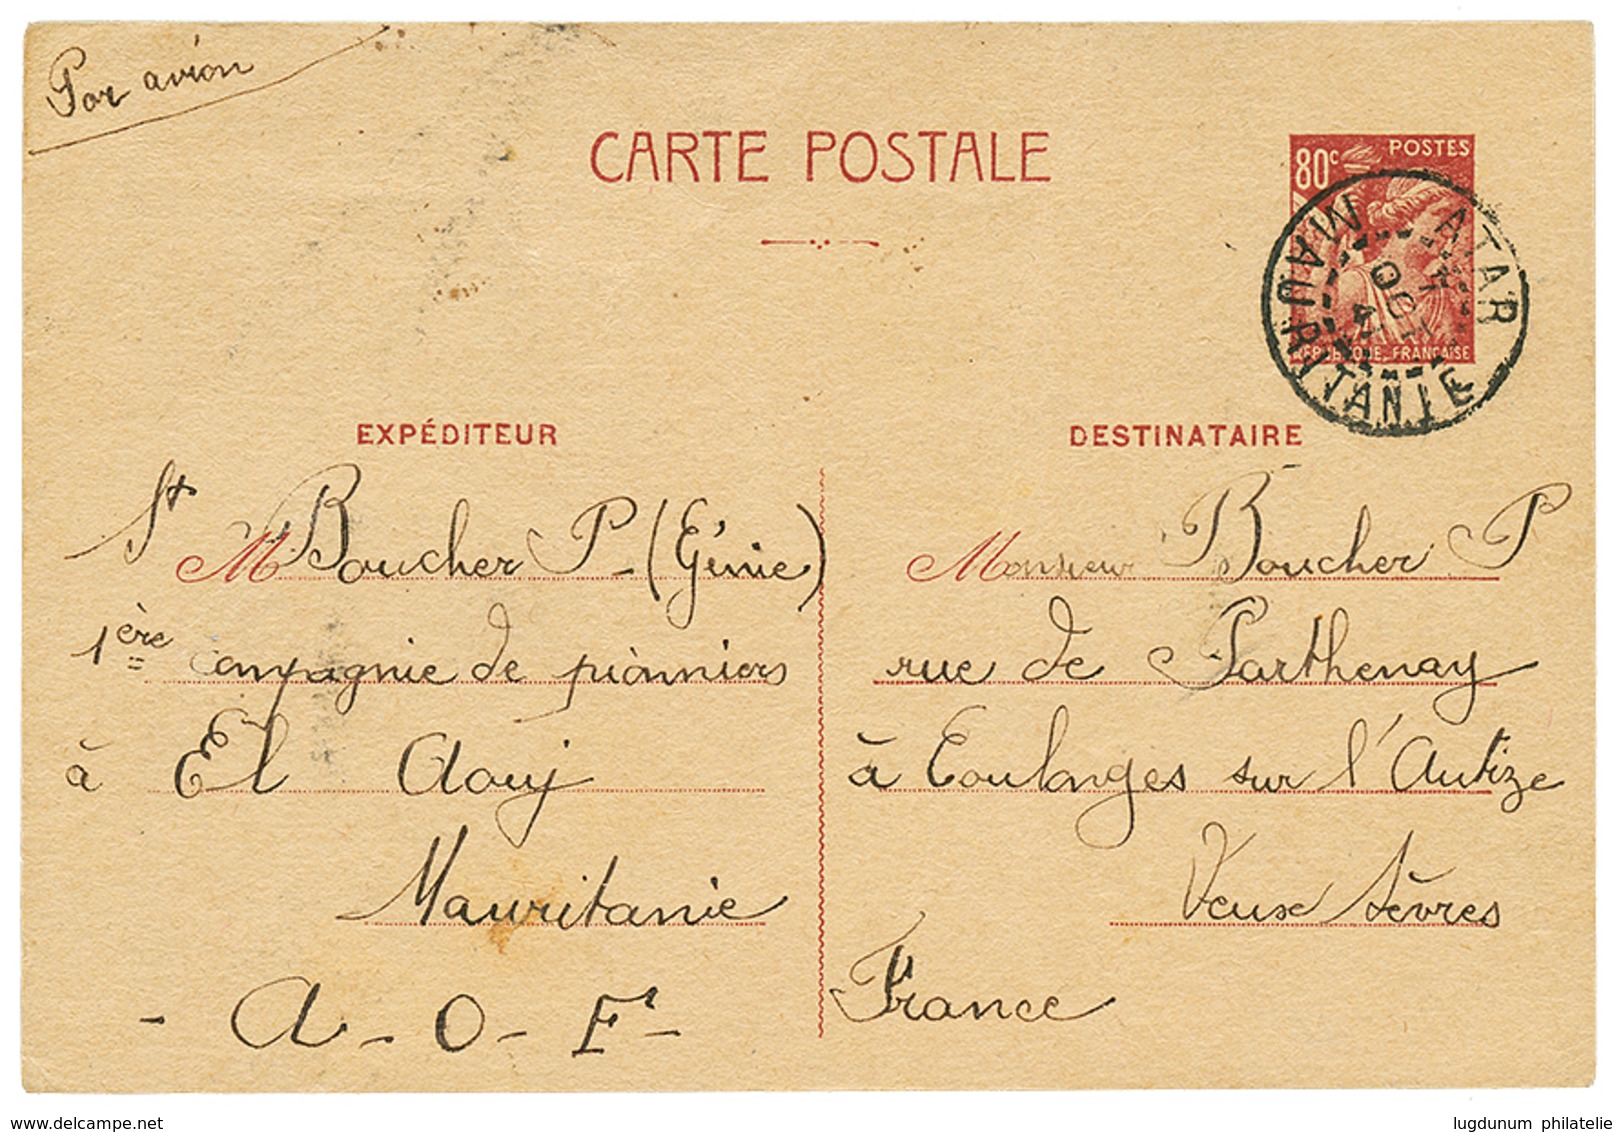 Par avion
CARTE POSTALE
80c POSTES
REPUBLIQUE FRANCAISE
ATAR
MAURITANIE
OCT
EXPÉDITEUR
St M Boucher P - (Génie)
1ère compagnie de pionniers
à El Aouj
Mauritanie
- A - O - F -
DESTINATAIRE
Monsieur Boucher P
rue de Parthenay
à Coulonges sur l'Autize
Deux Sèvres
France
lugdunum philatelie